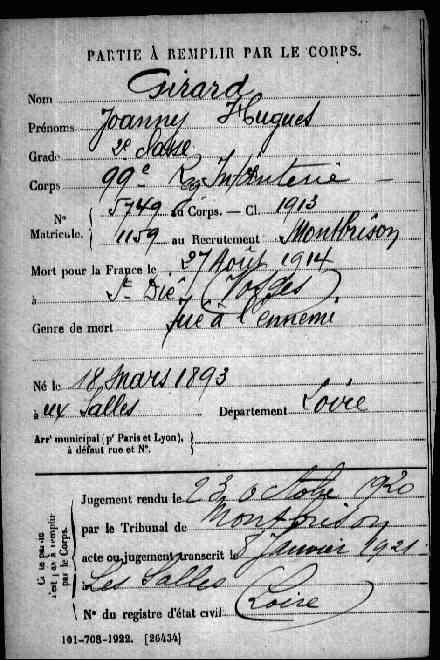 PARTIE À REMPLIR PAR LE CORPS.
Nom Girard
Prénoms Joanny Hugues
Grade 2e Classe
Corps 99e Rg Infanterie
N° Matricule. 5749 au Corps. — Cl. 1913
1159 au Recrutement Montbrison
Mort pour la France le 27 Août 1914
à St Dié (Vosges)
Genre de mort Tué à l'ennemi
Né le 18 Mars 1893
à aux Salles Département Loire
Arrt municipal (pr Paris et Lyon), à défaut rue et N°.
Jugement rendu le 23 Octobre 1920
par le Tribunal de Montbrison
acte ou jugement transcrit le 8 Janvier 1921
à Les Salles
N° du registre d'état civil (Loire)
Cette partie n'est pas à remplir par le Corps.
101-708-1922. [26434]